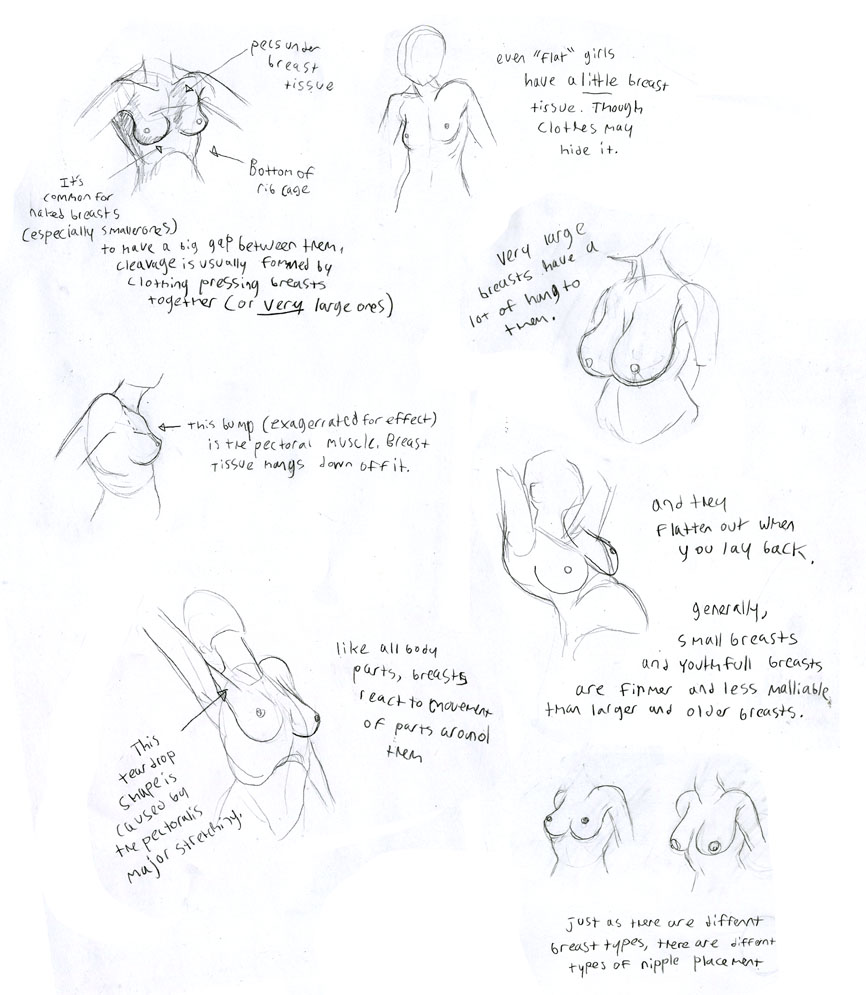 pecs under
breast
tissue
Bottom of
rib cage
It's
common for
naked breasts
(especially smaller ones)
to have a big gap between them,
cleavage is usually formed by
clothing pressing breasts
together (or very large ones)
even "flat" girls
have a little breast
tissue. Though
clothes may
hide it.
very large
breasts have a
lot of hang to
them.
This bump (exagerrated for effect)
is the pectoral muscle. Breast
tissue hangs down off it.
and they
flatten out when
you lay back.
generally,
small breasts
and youthfull breasts
are firmer and less malliable
than larger and older breasts.
like all body
parts, breasts
react to movement
of parts around
them
This
teardrop
shape is
caused by
the pectoralis
major stretching.
Just as there are different
breast types, there are different
types of nipple placement